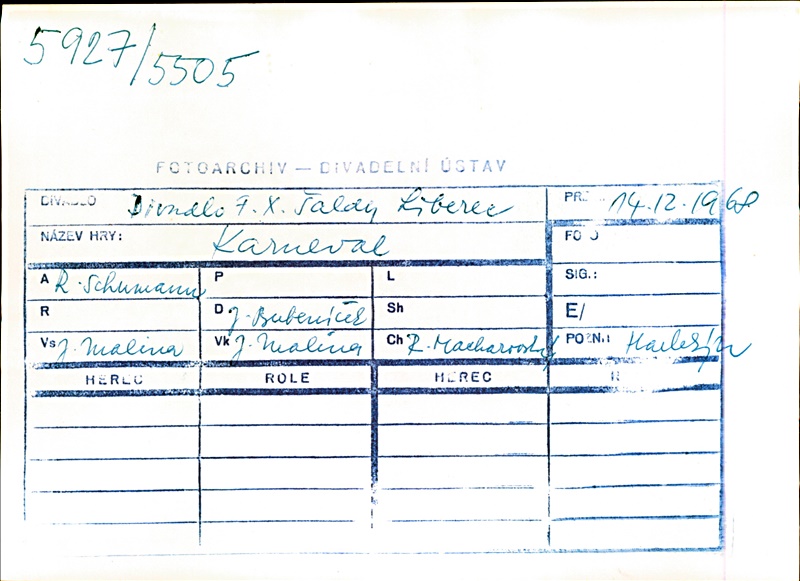 5927/5505
FOTOARCHIV — DIVADELNÍ ÚSTAV
DIVADLO Divadlo F. X. Šaldy Liberec PR 14.12.1968
NÁZEV HRY: Karneval FOTO
A R. Schumann P L SIG.:
R D J. Bubeníček Sh E/
Vs J. Malina Vk J. Malina Ch R. Macharovský POZN.: Harlekýn
HEREC ROLE HEREC R